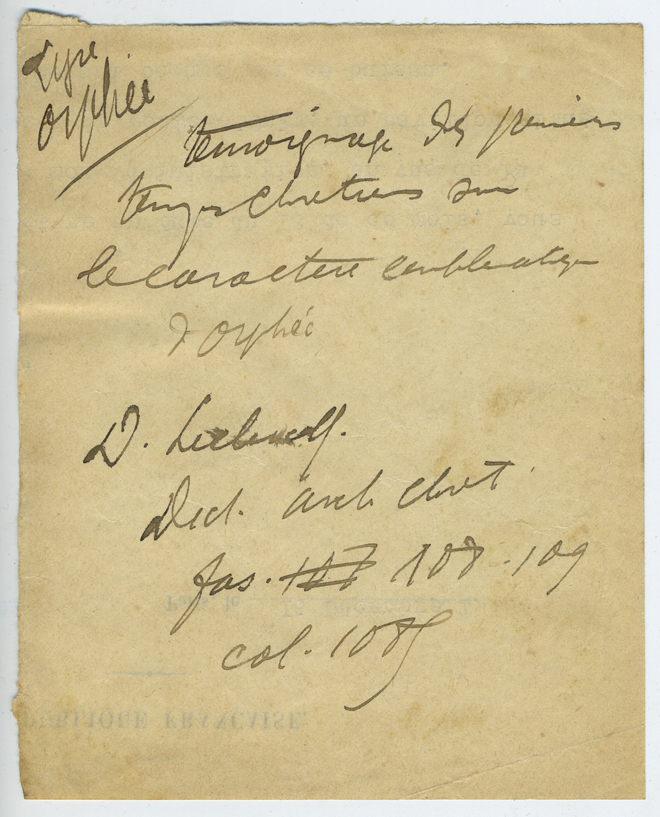 Lyre
Orphée
témoignage des premiers
temps chrétiens sur
le caractère emblématique
d'Orphée
D. Leclercq.
Dict. arch chret.
fas. 107 108-109
col. 1085